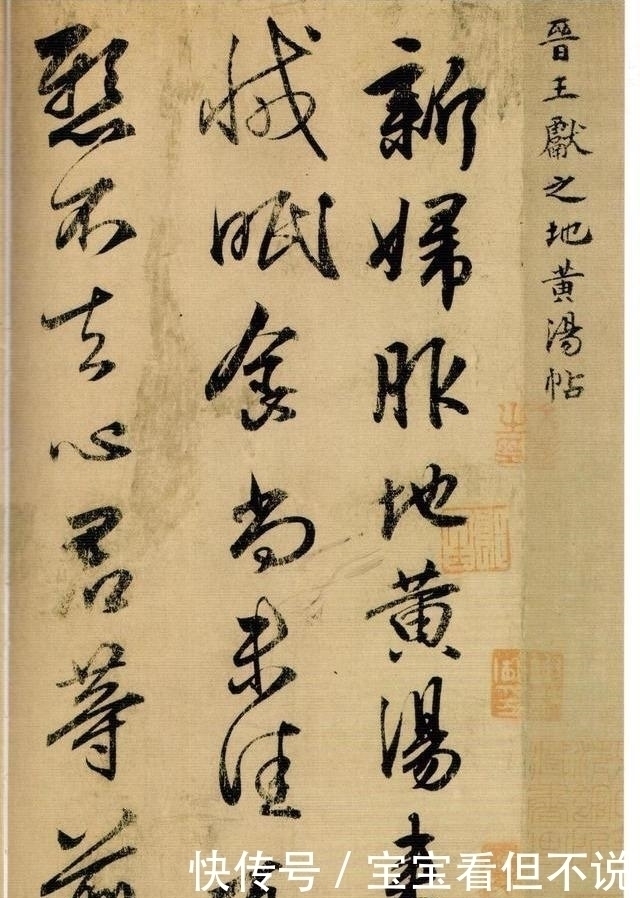 晉王獻之地黃湯帖
新婦服地黃湯來
減眠食尚未佳
懸不去心君等前
快传号 / 宝宝看但不说